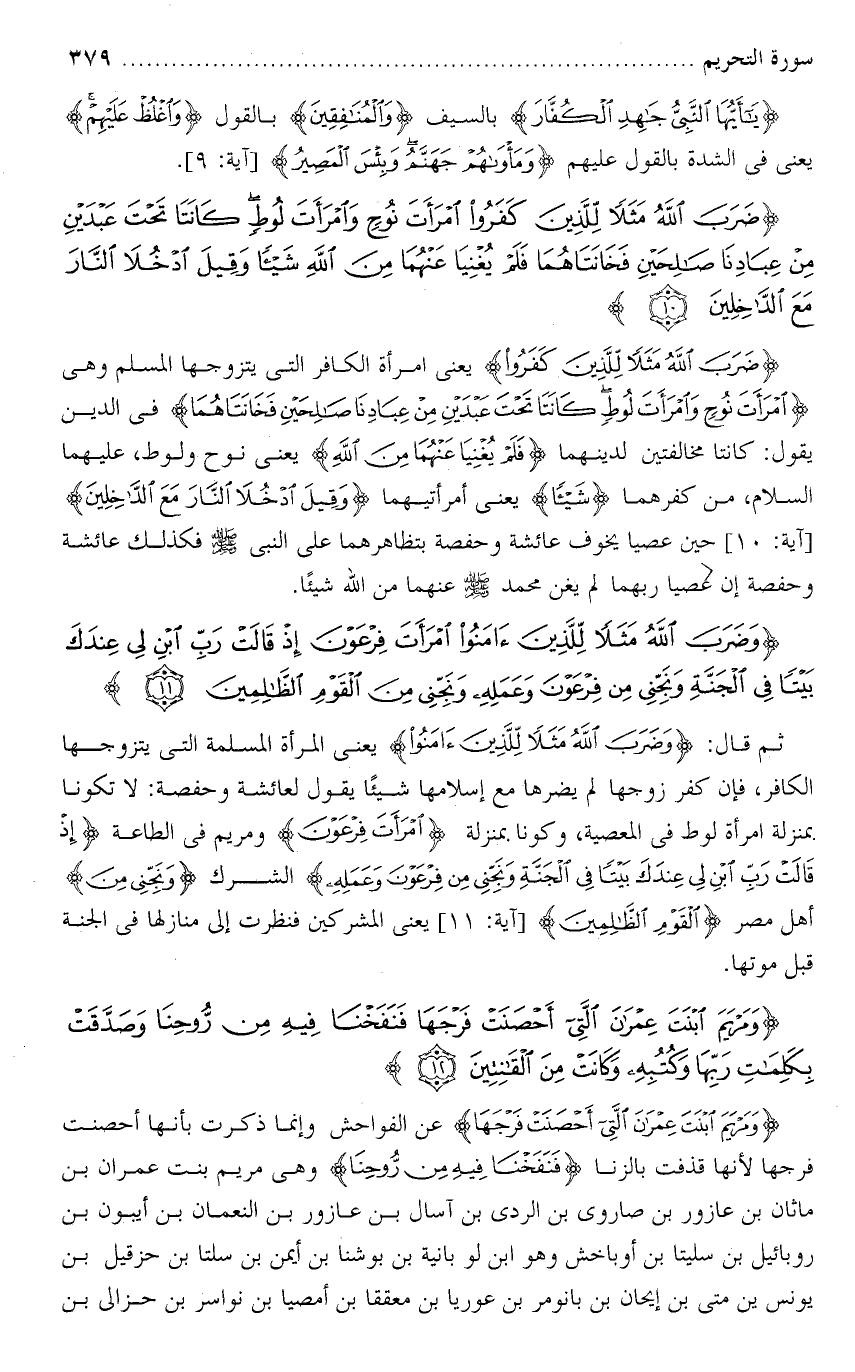 سورة التحريم ........................................................................ ٣٧٩
﴿يَـٰٓأَيُّهَا ٱلنَّبِىُّ جَـٰهِدِ ٱلْكُفَّارَ﴾ بالسيف ﴿وَٱلْمُنَـٰفِقِينَ﴾ بالقول ﴿وَٱغْلُظْ عَلَيْهِمْ ۚ﴾
يعنى فى الشدة بالقول عليهم ﴿وَمَأْوَىٰهُمْ جَهَنَّمُ ۖ وَبِئْسَ ٱلْمَصِيرُ﴾ [آية: ٩].
﴿ضَرَبَ ٱللَّهُ مَثَلًا لِّلَّذِينَ كَفَرُوا۟ ٱمْرَأَتَ نُوحٍ وَٱمْرَأَتَ لُوطٍ ۖ كَانَتَا تَحْتَ عَبْدَيْنِ
مِنْ عِبَادِنَا صَـٰلِحَيْنِ فَخَانَتَاهُمَا فَلَمْ يُغْنِيَا عَنْهُمَا مِنَ ٱللَّهِ شَيْـًٔا وَقِيلَ ٱدْخُلَا ٱلنَّارَ
مَعَ ٱلدَّٰخِلِينَ ١٠ ﴾
﴿ضَرَبَ ٱللَّهُ مَثَلًا لِّلَّذِينَ كَفَرُوا۟﴾ يعنى امرأة الكافر التى يتزوجها المسلم وهى
﴿ٱمْرَأَتَ نُوحٍ وَٱمْرَأَتَ لُوطٍ ۖ كَانَتَا تَحْتَ عَبْدَيْنِ مِنْ عِبَادِنَا صَـٰلِحَيْنِ فَخَانَتَاهُمَا﴾ فى الدين
يقول: كانتا مخالفتين لدينهما ﴿فَلَمْ يُغْنِيَا عَنْهُمَا مِنَ ٱللَّهِ﴾ يعنى نوح ولوط، عليهما
السلام، من كفرهما ﴿شَيْـًٔا﴾ يعنى أمرأتيهما ﴿وَقِيلَ ٱدْخُلَا ٱلنَّارَ مَعَ ٱلدَّٰخِلِينَ﴾
[آية: ١٠] حين عصيا يخوف عائشة وحفصة بتظاهرهما على النبى ﷺ فكذلك عائشة
وحفصة إن عصيا ربهما لم يغن محمد ﷺ عنهما من الله شيئًا.
﴿وَضَرَبَ ٱللَّهُ مَثَلًا لِّلَّذِينَ ءَامَنُوا۟ ٱمْرَأَتَ فِرْعَوْنَ إِذْ قَالَتْ رَبِّ ٱبْنِ لِى عِندَكَ
بَيْتًا فِى ٱلْجَنَّةِ وَنَجِّنِى مِن فِرْعَوْنَ وَعَمَلِهِۦ وَنَجِّنِى مِنَ ٱلْقَوْمِ ٱلظَّـٰلِمِينَ ١١ ﴾
ثم قال: ﴿وَضَرَبَ ٱللَّهُ مَثَلًا لِّلَّذِينَ ءَامَنُوا۟﴾ يعنى المرأة المسلمة التى يتزوجها
الكافر، فإن كفر زوجها لم يضرها مع إسلامها شيئًا يقول لعائشة وحفصة: لا تكونا
بمنزلة امرأة لوط فى المعصية، وكونا بمنزلة ﴿ٱمْرَأَتَ فِرْعَوْنَ﴾ ومريم فى الطاعة ﴿إِذْ
قَالَتْ رَبِّ ٱبْنِ لِى عِندَكَ بَيْتًا فِى ٱلْجَنَّةِ وَنَجِّنِى مِن فِرْعَوْنَ وَعَمَلِهِۦ﴾ الشرك ﴿وَنَجِّنِى مِنَ﴾
أهل مصر ﴿ٱلْقَوْمِ ٱلظَّـٰلِمِينَ﴾ [آية: ١١] يعنى المشركين فنظرت إلى منازلها فى الجنة
قبل موتها.
﴿وَمَرْيَمَ ٱبْنَتَ عِمْرَٰنَ ٱلَّتِىٓ أَحْصَنَتْ فَرْجَهَا فَنَفَخْنَا فِيهِ مِن رُّوحِنَا وَصَدَّقَتْ
بِكَلِمَـٰتِ رَبِّهَا وَكُتُبِهِۦ وَكَانَتْ مِنَ ٱلْقَـٰنِتِينَ ١٢ ﴾
﴿وَمَرْيَمَ ٱبْنَتَ عِمْرَٰنَ ٱلَّتِىٓ أَحْصَنَتْ فَرْجَهَا﴾ عن الفواحش وإنما ذكرت بأنها أحصنت
فرجها لأنها قذفت بالزنا ﴿فَنَفَخْنَا فِيهِ مِن رُّوحِنَا﴾ وهى مريم بنت عمران بن
ماثان بن عازور بن صاروى بن الردى بن آسال بن عازور بن النعمان بن أيبون بن
روبائيل بن سليتا بن أوباخش وهو ابن لو بانية بن بوشنا بن أيمن بن سلتا بن حزقيل بن
يونس بن متى بن إيحان بن بانومر بن عوريا بن معققا بن أمصيا بن نواسر بن حزالى بن